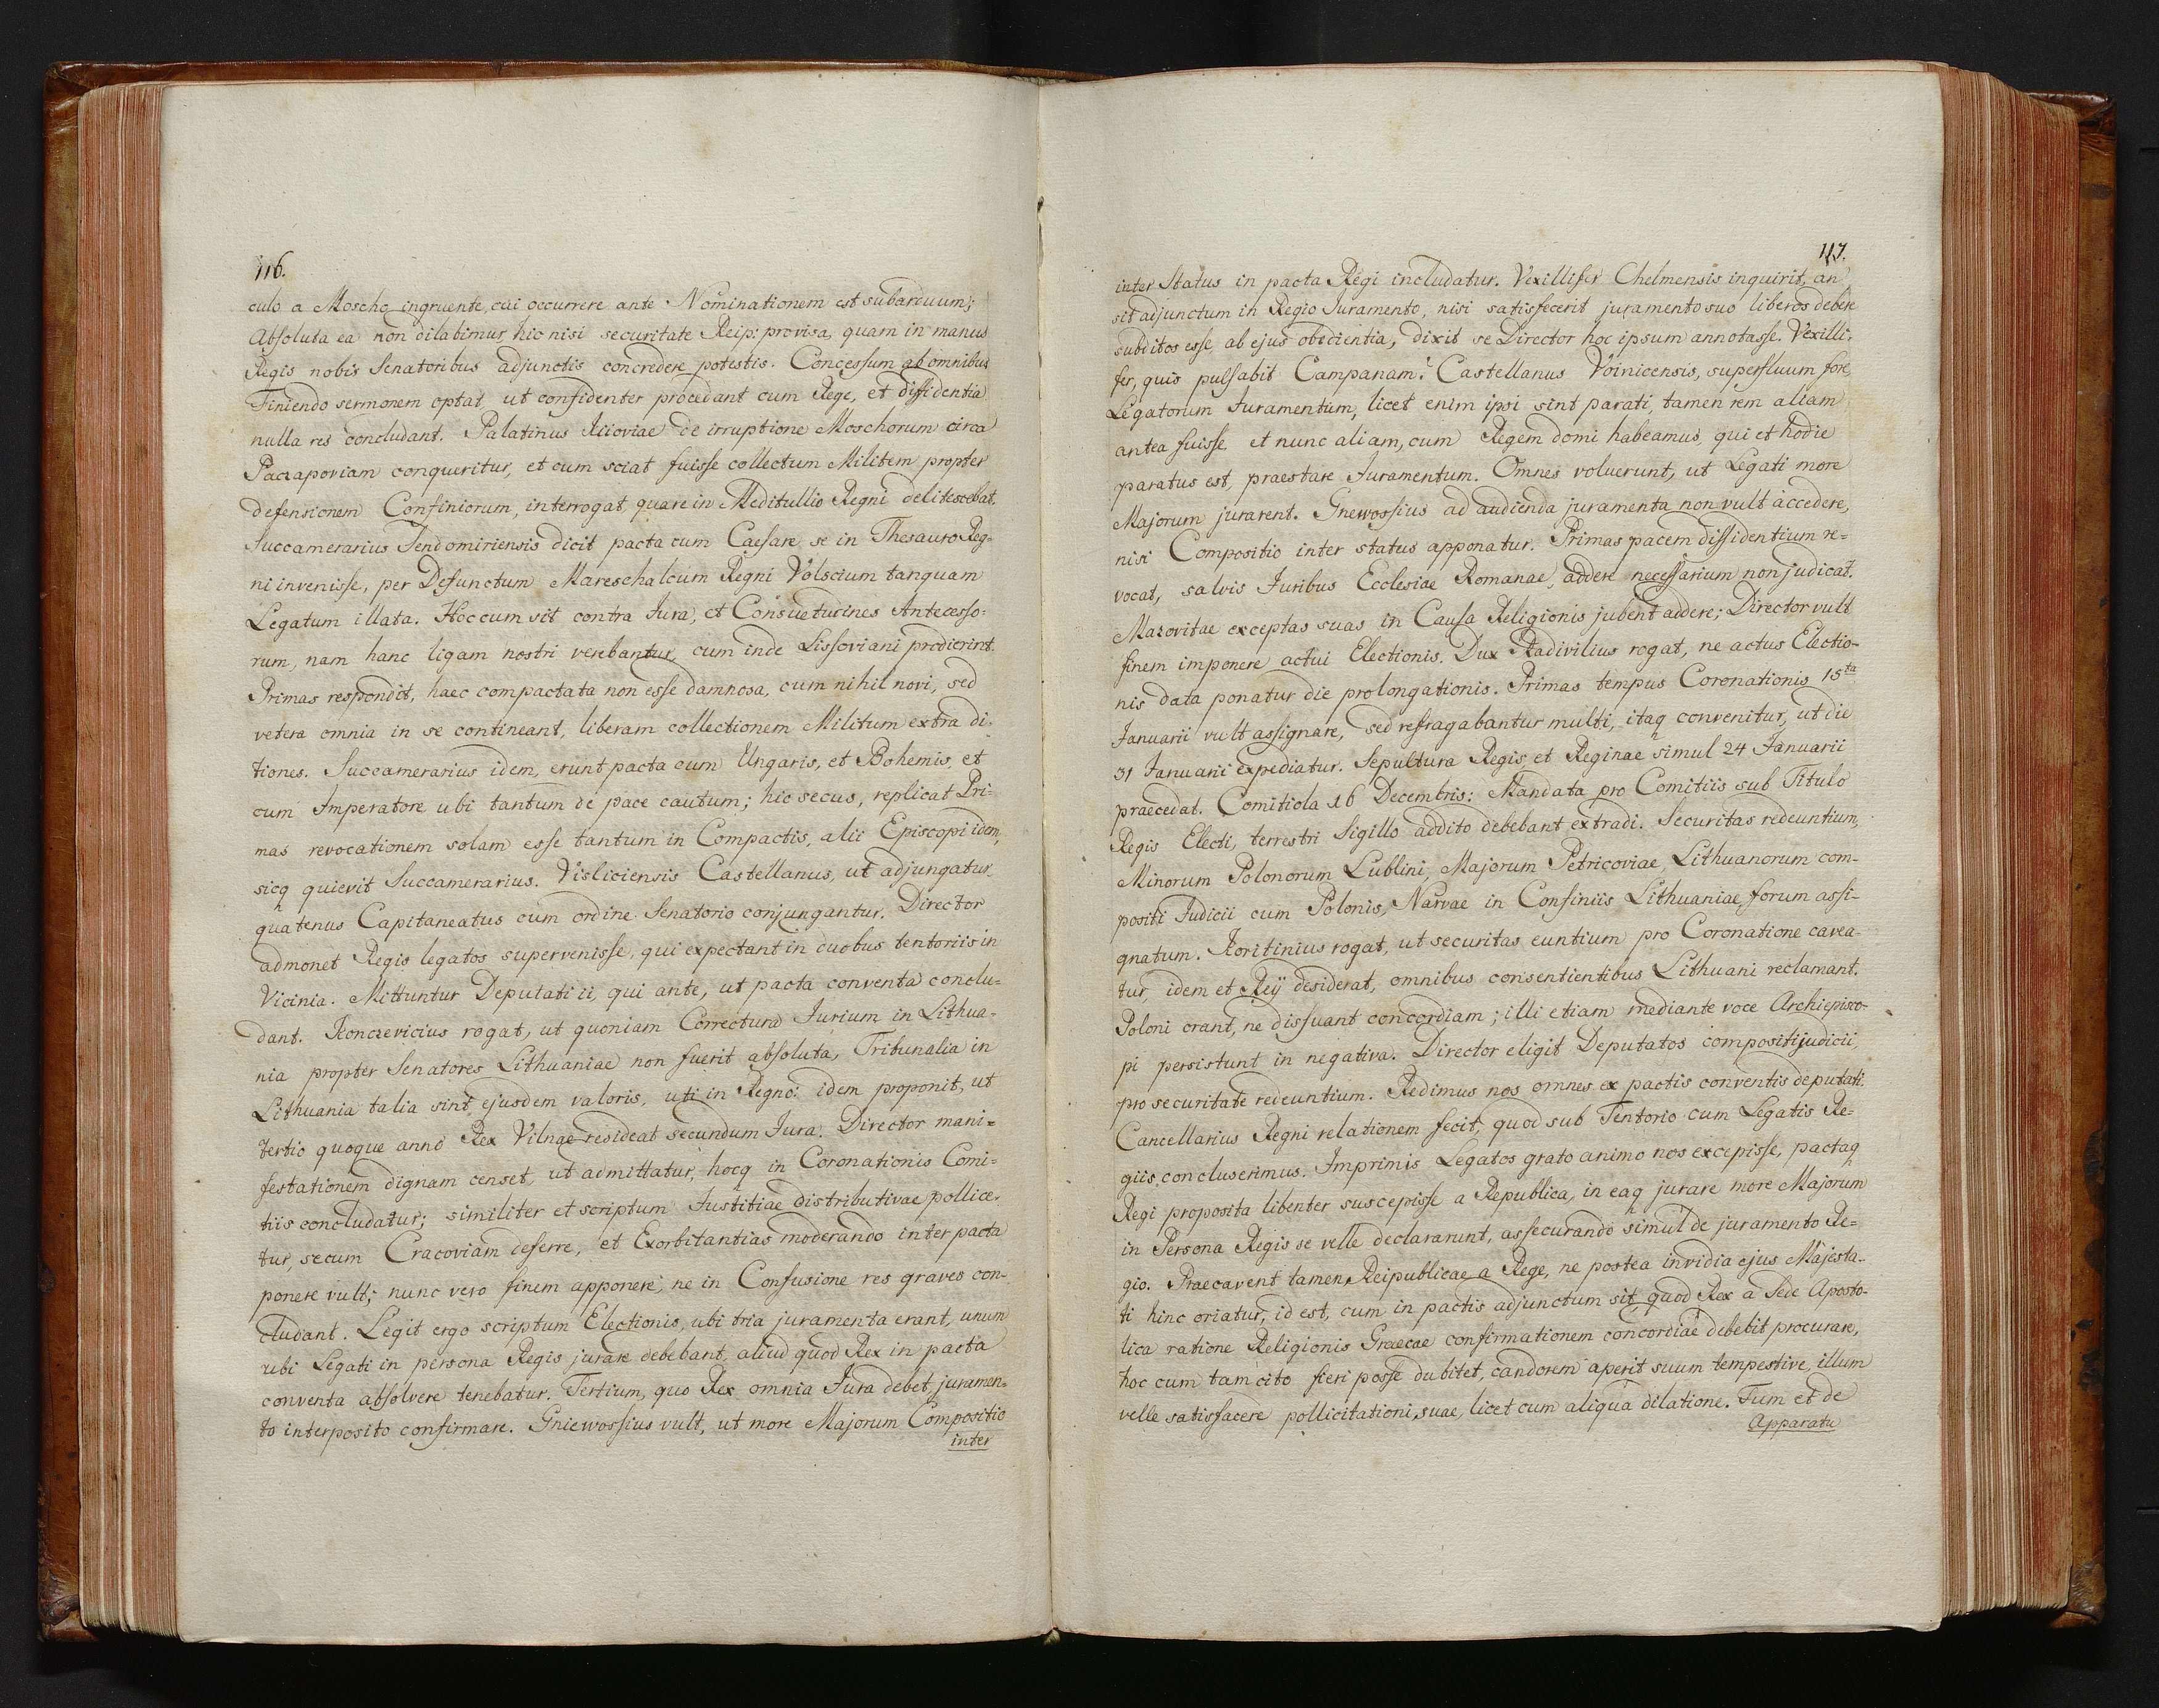 116.
culo a Moscho ingruente, cui occurrere ante Nominationem est subarduum;
Absoluta ea non dilabimur hic nisi securitate Reip: provisa, quam in manus
Regis nobis Senatoribus adjunctis concredere potestis. Concessum ab omnibus
Finiendo sermonem optat, ut confidenter procedant cum Rege, et diffidentia
nulla res concludant. Palatinus Kiioviae de irruptione Moschorum circa
conqueritur, et cum sciat fuisse collectum Militem propter
defensionem Confiniorum, interrogat, quare in Meditullio Regni delitescebat.
Succamerarius Sendomiriensis dicit pacta cum Caesare se in Thesauro Reg-
ni invenisse, per Defunctum Mareschalcum Regni Volscium tanquam
Legatum illata. Hoc cum sit contra Jura, et Consuetudines Antecesso-
rum, nam hanc ligam nostri verebantur, cum inde Lissoviani prodierint.
Primas respondit, haec compactata non esse damnosa, cum nihil novi, sed
vetera omnia in se contineant, liberam collectionem Militum extra di-
tiones. Succamerarius idem, erunt pacta cum Ungaris, et Bohemis, et
cum Imperatore ubi tantum de pace cautum; hic secus, replicat Pri-
mas revocationem solam esse tantum in Compactis, alii Episcopi idem,
sicq quievit Succamerarius. Visliciensis Castellanus, ut adjungatur
quatenus Capitaneatus cum ordine Senatorio conjungantur. Director
admonet Regis legatos supervenisse, qui expectant in duobus tentoriis in
Vicinia. Mittuntur Deputati ii, qui ante, ut pacta conventa conclu-
dant. Konczevicius rogat, ut quoniam Correctura Jurium in Lithua-
nia propter Senatores Lithuaniae non fuerit absoluta, Tribunalia in
Lithuania talia sint, ejusdem valoris, uti in Regno: idem proponit, ut
tertio quoque anno Rex Vilnae resideat secundum Jura. Director mani-
festationem dignam censet, ut admittatur, hocq in Coronationis Comi-
tiis concludatur; similiter et scriptum Justitiae distributivae pollice-
tur, secum Cracoviam deferre, et Exorbitantias moderando inter pacta
ponere vult; nunc vero finem apponere, ne in Confusione res graves con-
cludant. Legit ergo scriptum Electionis, ubi tria juramenta erant, unum
ubi Legati in persona Regis jurare debebant, aliud quod Rex in pacta
conventa absolvere tenebatur. Tertium, quo Rex omnia Jura debet, juramen-
to interposito confirmare. Gniewossius vult, ut more Majorum Compositio
inter
117.
inter Status in pacta Regi includatur. Vexillifer Chelmensis inquirit, an
sit adjunctum in Regio Juramento, nisi satisfecerit juramento suo liberos debere
subditos esse ab ejus obedientia, dixit se Director hoc ipsum annotasse. Vexilli-
fer, quis pulsabit Campanam? Castellanus Voinicensis, superfluum fore
Legatorum Juramentum, licet enim ipsi sint parati, tamen rem aliam
antea fuisse et nunc aliam, cum Regem domi habeamus, qui et hodie
paratus est, praestare Juramentum. Omnes voluerunt, ut Legati more
Majorum jurarent. Gnewossius ad audienda juramenta non vult accedere,
nisi Compositio inter status apponatur. Primas pacem dissidentium re-
vocat, salvis Juribus Ecclesiae Romanae, addere necessarium non judicat.
Masovitae exceptas suas in Causa Religionis jubent addere; Director vult
finem imponere actui Electionis. Dux Radivilius rogat, ne actus Electio-
nis data ponatur die prolongationis. Primas tempus Coronationis 15ta
Januarii vult assignare, sed refragabantur multi, itaq convenitur, ut die
31 Januarii expediatur. Sepultura Regis, et Reginae simul 24 Januarii
praecedat. Comitiola 16 Decembris: Mandata pro Comitiis sub Titulo
Regis Electi, terrestri Sigillo addito debebant extradi. Securitas redeuntium,
Minorum Polonorum Lublini, Majorum Petricoviae, Lithuanorum com-
positi Judicii cum Polonis, Narvae in Confiniis Lithuaniae forum assi-
gnatum. Koritinius rogat, ut securitas euntium pro Coronatione cavea-
tur, idem et Reÿ desiderat, omnibus consentientibus Lithuani reclamant.
Poloni orant, ne dissuant concordiam; illi etiam mediante voce Archiepisco-
pi persistunt in negativa. Director eligit Deputatos compositi judicii,
pro securitate redeuntium. Redimus nos omnes ex pactis conventis deputati.
Cancellarius Regni relationem fecit, quod sub Tentorio cum Legatis Re-
giis concluserimus. Imprimis Legatos grato animo nos excepisse, pactaq
Regi proposita libenter suscepisse a Republica, in eaq jurare more Majorum
in Persona Regis se velle declararunt, assecurando simul de juramento Re-
gio. Praecavent tamen Reipublicae a Rege, ne postea invidia ejus Majesta-
ti hinc oriatur, id est, cum in pactis adjunctum sit, quod Rex a Sede Aposto-
lica ratione Religionis Graecae confirmationem concordiae debebit procurare,
hoc cum tam cito fieri posse dubitet, candorem aperit suum tempestive, illum
velle satisfacere pollicitationi suae, licet cum aliqua dilatione. Tum et de
Apparatu